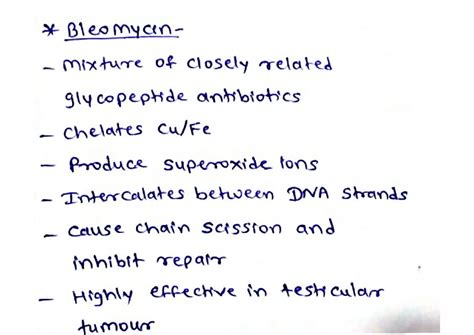 * Bleomycin-
- Mixture of closely related
glycopeptide antibiotics
- Chelates Cu/Fe
- Produce superoxide Ions
- Intercalates between DNA strands
- Cause chain scission and
inhibit repair
- Highly effective in testicular
tumour